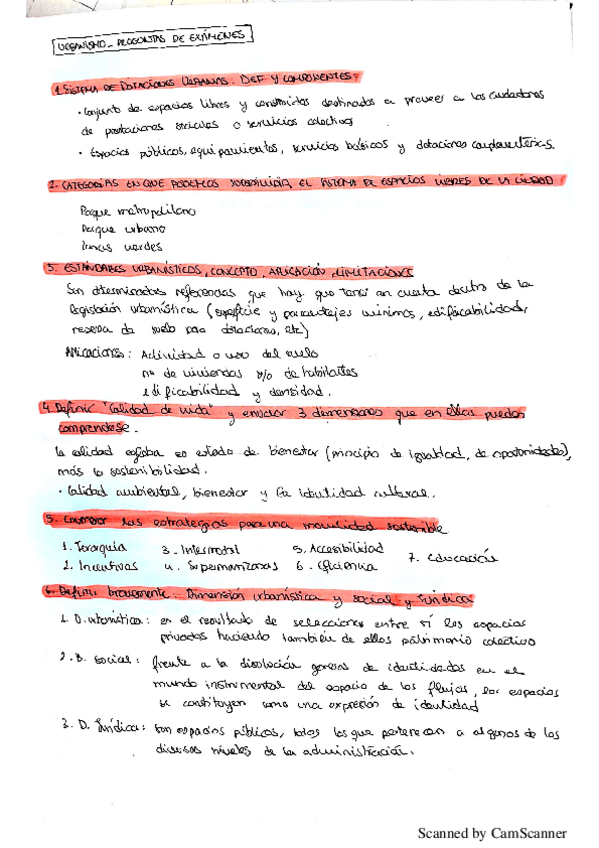 URBANISMO_ PREGUNTAS DE EXÁMENES
1. SISTEMA DE DOTACIONES URBANAS. DEF Y COMPONENTES?
· Conjunto de espacios libres y construidos destinados a proveer a los ciudadanos
de prestaciones sociales o servicios colectivos
· Espacios públicos, equipamientos, servicios básicos y dotaciones complementarias.
2. CATEGORÍAS EN QUE PODEMOS SUBDIVIDIR EL SISTEMA DE ESPACIOS LIBRES DE LA CIUDAD?
Parque metropolitano
Parque urbano
Zonas verdes
3. ESTÁNDARES URBANÍSTICOS, CONCEPTO, APLICACIÓN, LIMITACIONES
Son determinadas referencias que hay que tener en cuenta dentro de la
legislación urbanística (superficie y porcentajes mínimos, edificabilidad,
reserva de suelo para dotaciones, etc)
Aplicaciones: Actividad o uso del suelo
nº de viviendas y/o de habitantes
edificabilidad y densidad.
4. Definir "Calidad de vida" y enunciar 3 dimensiones que en ellas pueden
comprenderse.
La calidad engloba el estado de bienestar (principio de igualdad, de oportunidades),
más la sostenibilidad.
· Calidad ambiental, bienestar y la identidad cultural.
5. Enumerar las estrategias para una movilidad sostenible
1. Jerarquía 3. Intermodal 5. Accesibilidad 7. Educación
2. Incentivos 4. Supermanzanas 6. Eficiencia
6. Definir brevemente: Dimensión urbanística y social y Jurídica
1. D. urbanística: en el resultado de selecciones entre sí los espacios
privados haciendo también de ellos patrimonio colectivo
2. D. Social: frente a la disolución general de identidades en el
mundo instrumental del espacio de los flujos, los espacios
se constituyen como una expresión de identidad
3. D. Jurídica: son espacios públicos, todos los que pertenecen a algunos de los
diversos niveles de la administración.
Scanned by CamScanner